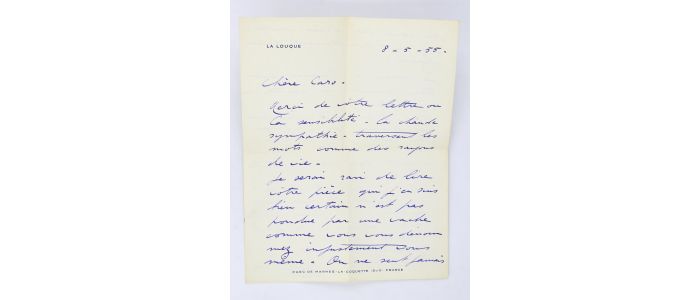 LA LOUQUE
8-5-55-
Chère Caro -
Merci de votre lettre ou
la sensibilité - la chaude
sympathie - traversent les
mots comme des rayons
de vie -
Je serais ravi de lire
votre pièce qui j'en suis
bien certain n'est pas
pondue par une vache
comme vous vous dénom
mez injustement vous
même - On ne sait jamais
PARC DE MARNES-LA-COQUETTE (S.-O.) FRANCE